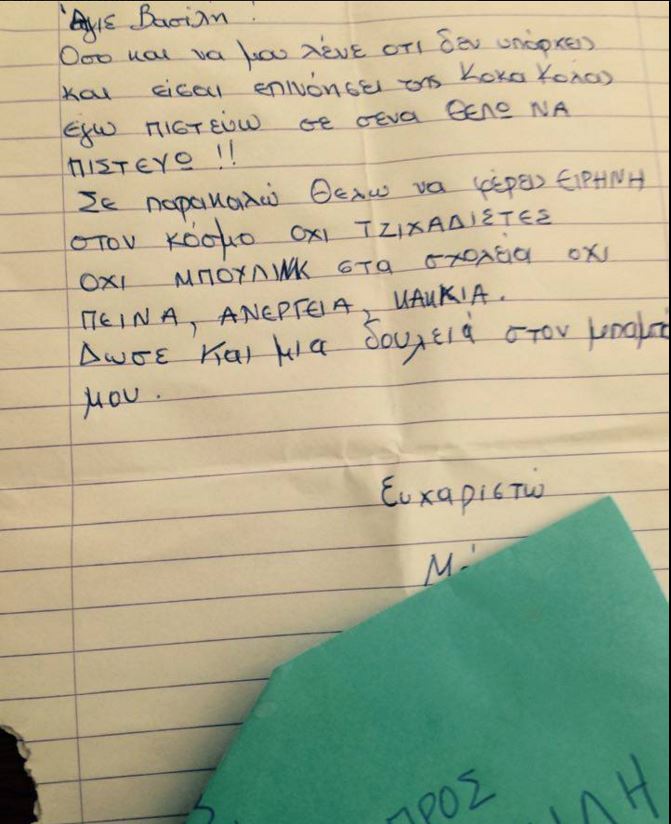 Άγιε Βασίλη !
Οσο και να μου λένε οτι δεν υπάρχεις
και είσαι επινόησει της Κοκα Κολας
εγω πιστεύω σε σενα ΘΕΛΩ ΝΑ
ΠΙΣΤΕΥΩ !!
Σε παρακαλώ Θελω να φέρεις ΕΙΡΗΝΗ
στον κόσμο ΟΧΙ ΤΖΙΧΑΔΙΣΤΕΣ
ΟΧΙ ΜΠΟΥΛΙΝΚ στα σχολεία οχι
ΠΕΙΝΑ, ΑΝΕΡΓΕΙΑ, ΚΑΚΚΙΑ.
Δωσε Και μια δουλειά στον μπαμπά
μου.
Ευχαριστώ
ΠΡΟΣ